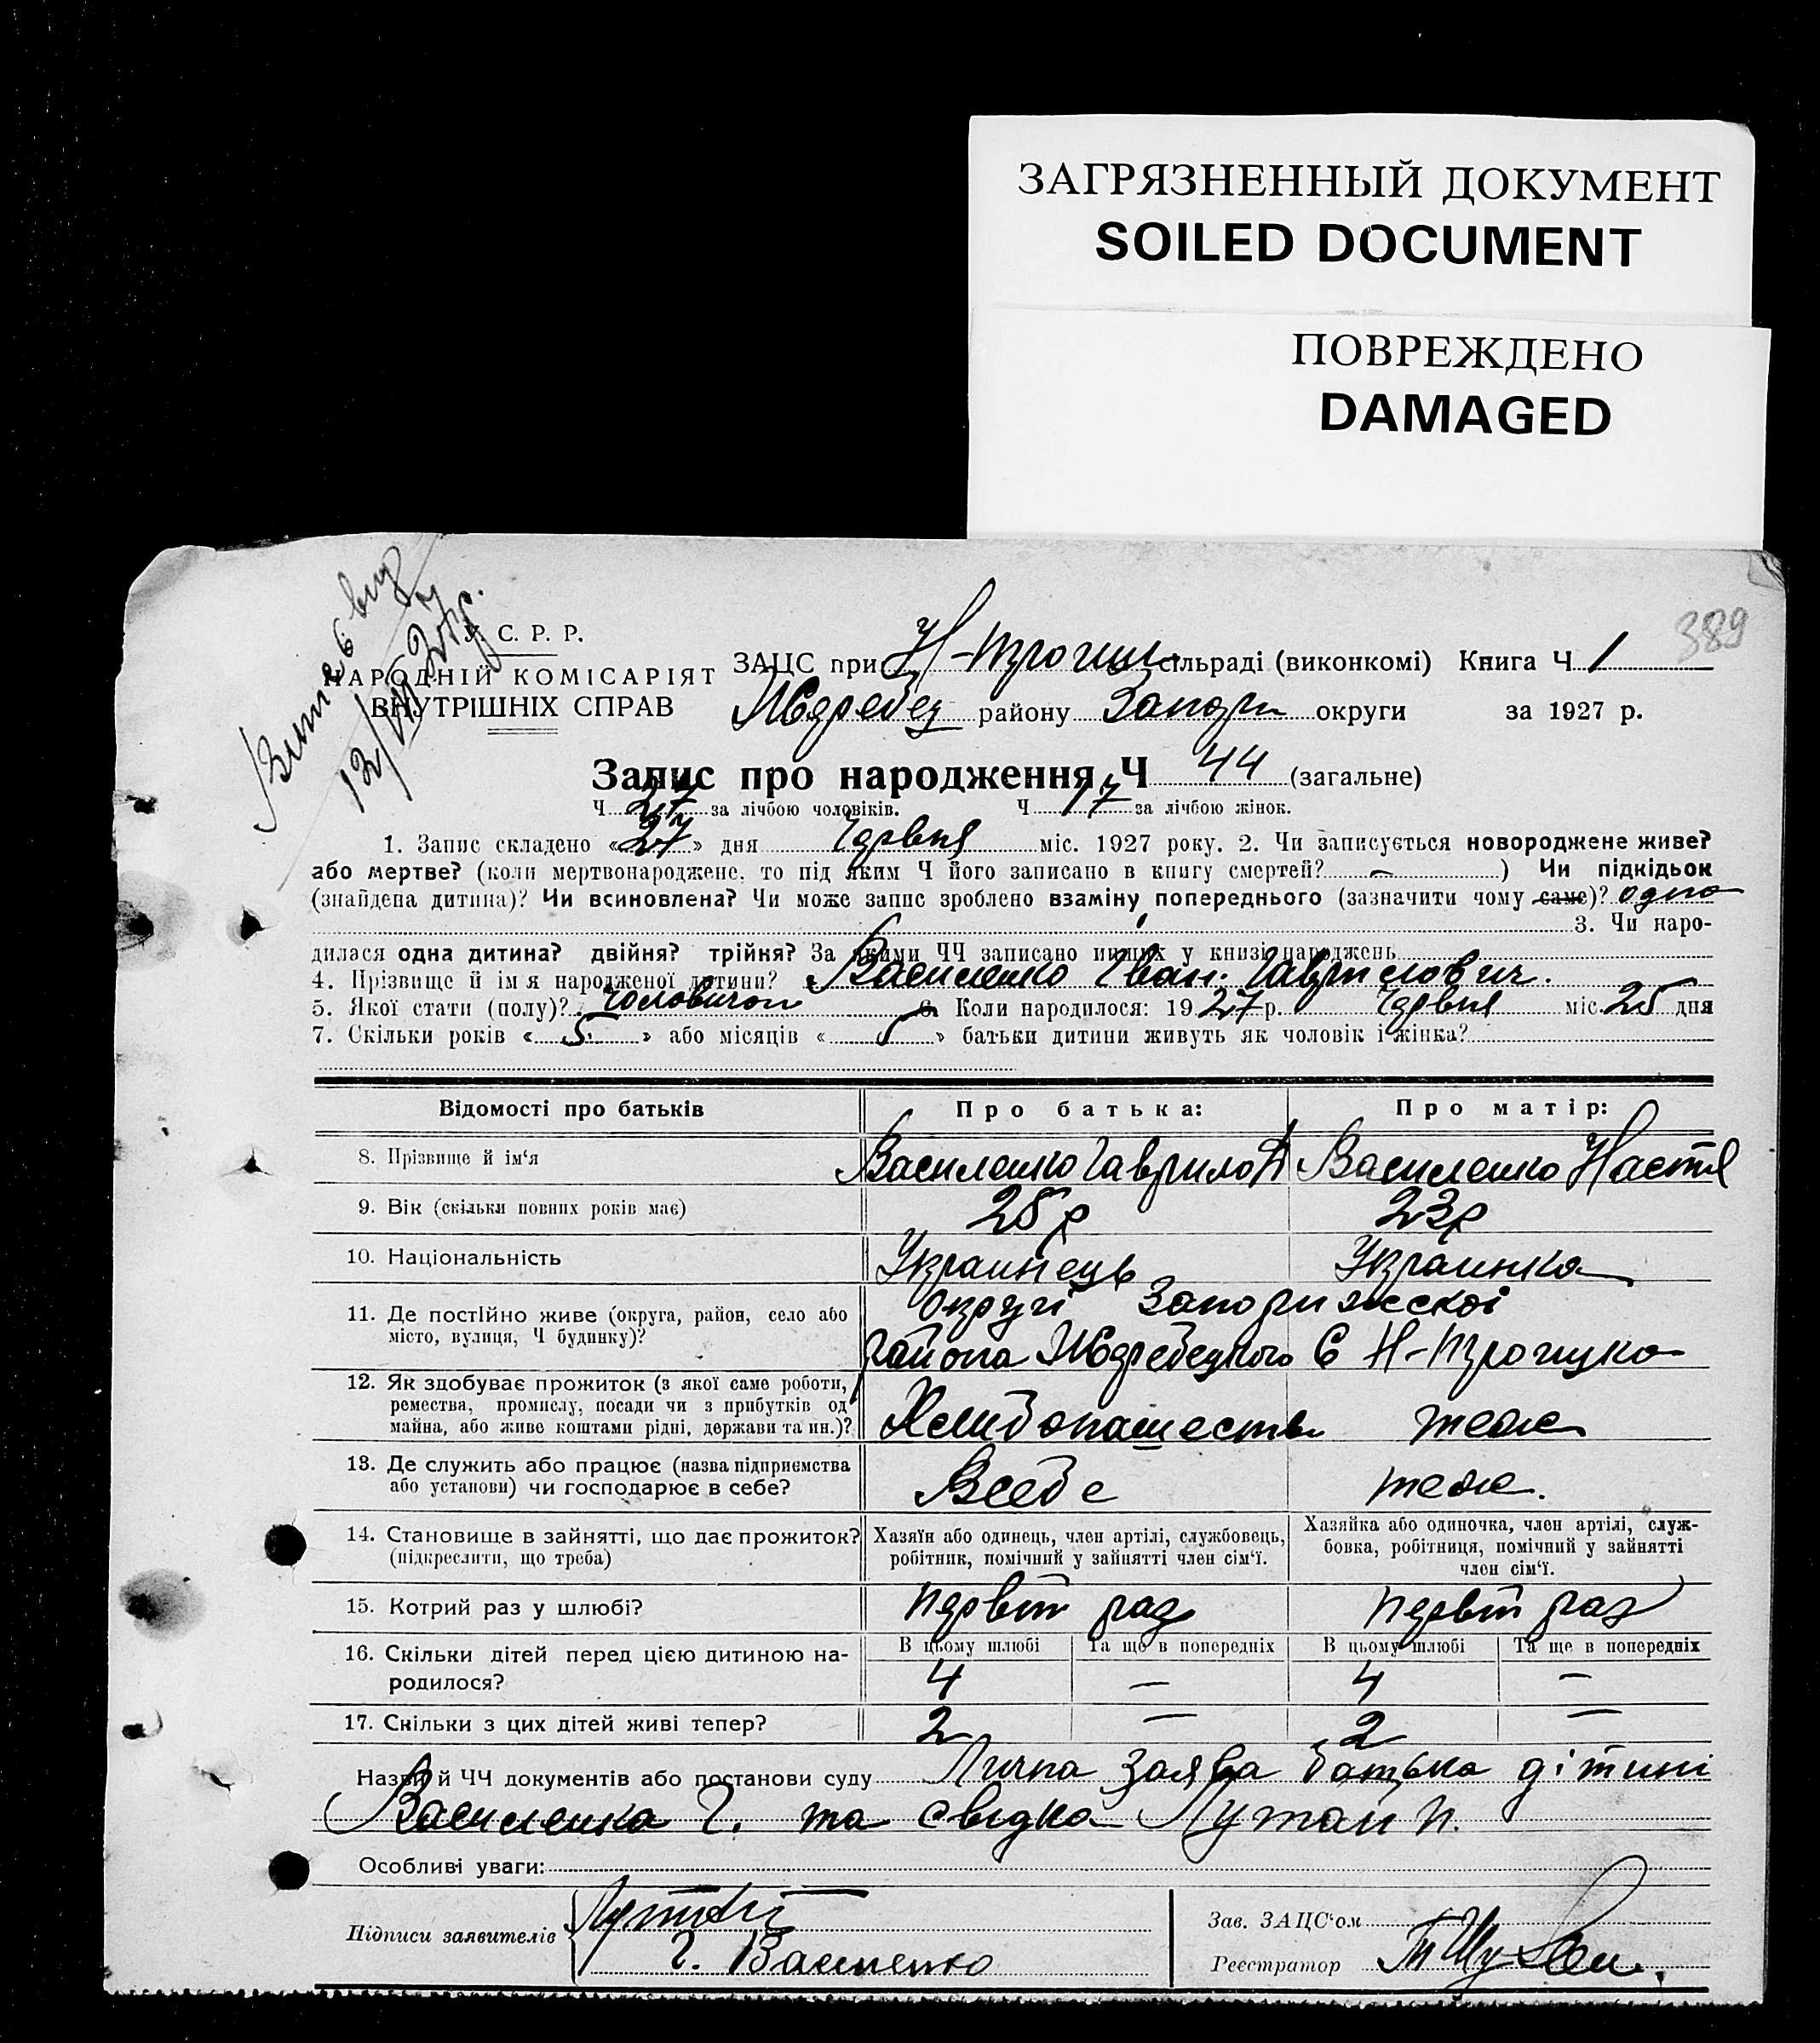 ЗАГРЯЗНЕННЫЙ ДОКУМЕНТ
SOILED DOCUMENT
ПОВРЕЖДЕНО
DAMAGED
389
У. С. Р. Р.
НАРОДНІЙ КОМІСАРІЯТ
ВНУТРІШНІХ СПРАВ
ЗАЦС при сільраді (виконкомі) Книга Ч. 1
району округи за 1927 р.
Запис про народження Ч 44 (загальне)
Ч 27 за лічбою чоловіків. Ч 17 за лічбою жінок.
1. Запис складено «27» дня Червня міс. 1927 року. 2. Чи записується новороджене живе?
або мертве? (коли мертвонароджене, то під яким Ч його записано в книгу смертей? — ) Чи підкідьок
(знайдена дитина)? Чи всиновлена? Чи може запис зроблено взаміну попереднього (зазначити чому саме)? одно
3. Чи наро-
дилася одна дитина? двійня? трійня? За якими ЧЧ записано инших у книзі народжень
4. Прізвище й ім я народженої дитини? Василенко Іван Гаврилович.
5. Якої стати (полу)? 6. Коли народилося: 1927 р. Червня міс. 25 дня
7. Скільки років «5» або місяців « » батьки дитини живуть як чоловік і жінка?
Відомості про батьків Про батька: Про матір:
8. Прізвище й ім‘я Василенко Гаврило Василенко Настя
9. Вік (скільки повних років має) 25 р 23 р
10. Національність Украинець Украинка
11. Де постійно живе (округа, район, село або Округі Запорижскоі
місто, вулиця, Ч будинку)? района
12. Як здобуває прожиток (з якої саме роботи,
ремества, промислу, посади чи з прибутків од
майна, або живе коштами рідні, держави та ин.)? теже
13. Де служить або працює (назва підприємства
або установи) чи господарює в себе? Всебе теже.
14. Становище в зайнятті, що дає прожиток? Хазяїн або одинець, член артілі, службовець, Хазяйка або одиночка, член артілі, служ-
(підкреслити, що треба) робітник, помічний у зайнятті член сім‘ї. бовка, робітниця, помічний у зайнятті
член сім‘ї.
15. Котрий раз у шлюбі? раз раз
16. Скільки дітей перед цією дитиною на- В цьому шлюбі Та ще в попередніх В цьому шлюбі Та ще в попередніх
родилося? 4 — 4 —
17. Скільки з цих дітей живі тепер? 2 — 2 —
Назви й ЧЧ документів або постанови суду Лична заява батька дітині
Василенка Г. та свідка Лутай П.
Особливі уваги:
Підписи заявителів Зав. ЗАЦС‘ом
Г. Василенко Реєстратор